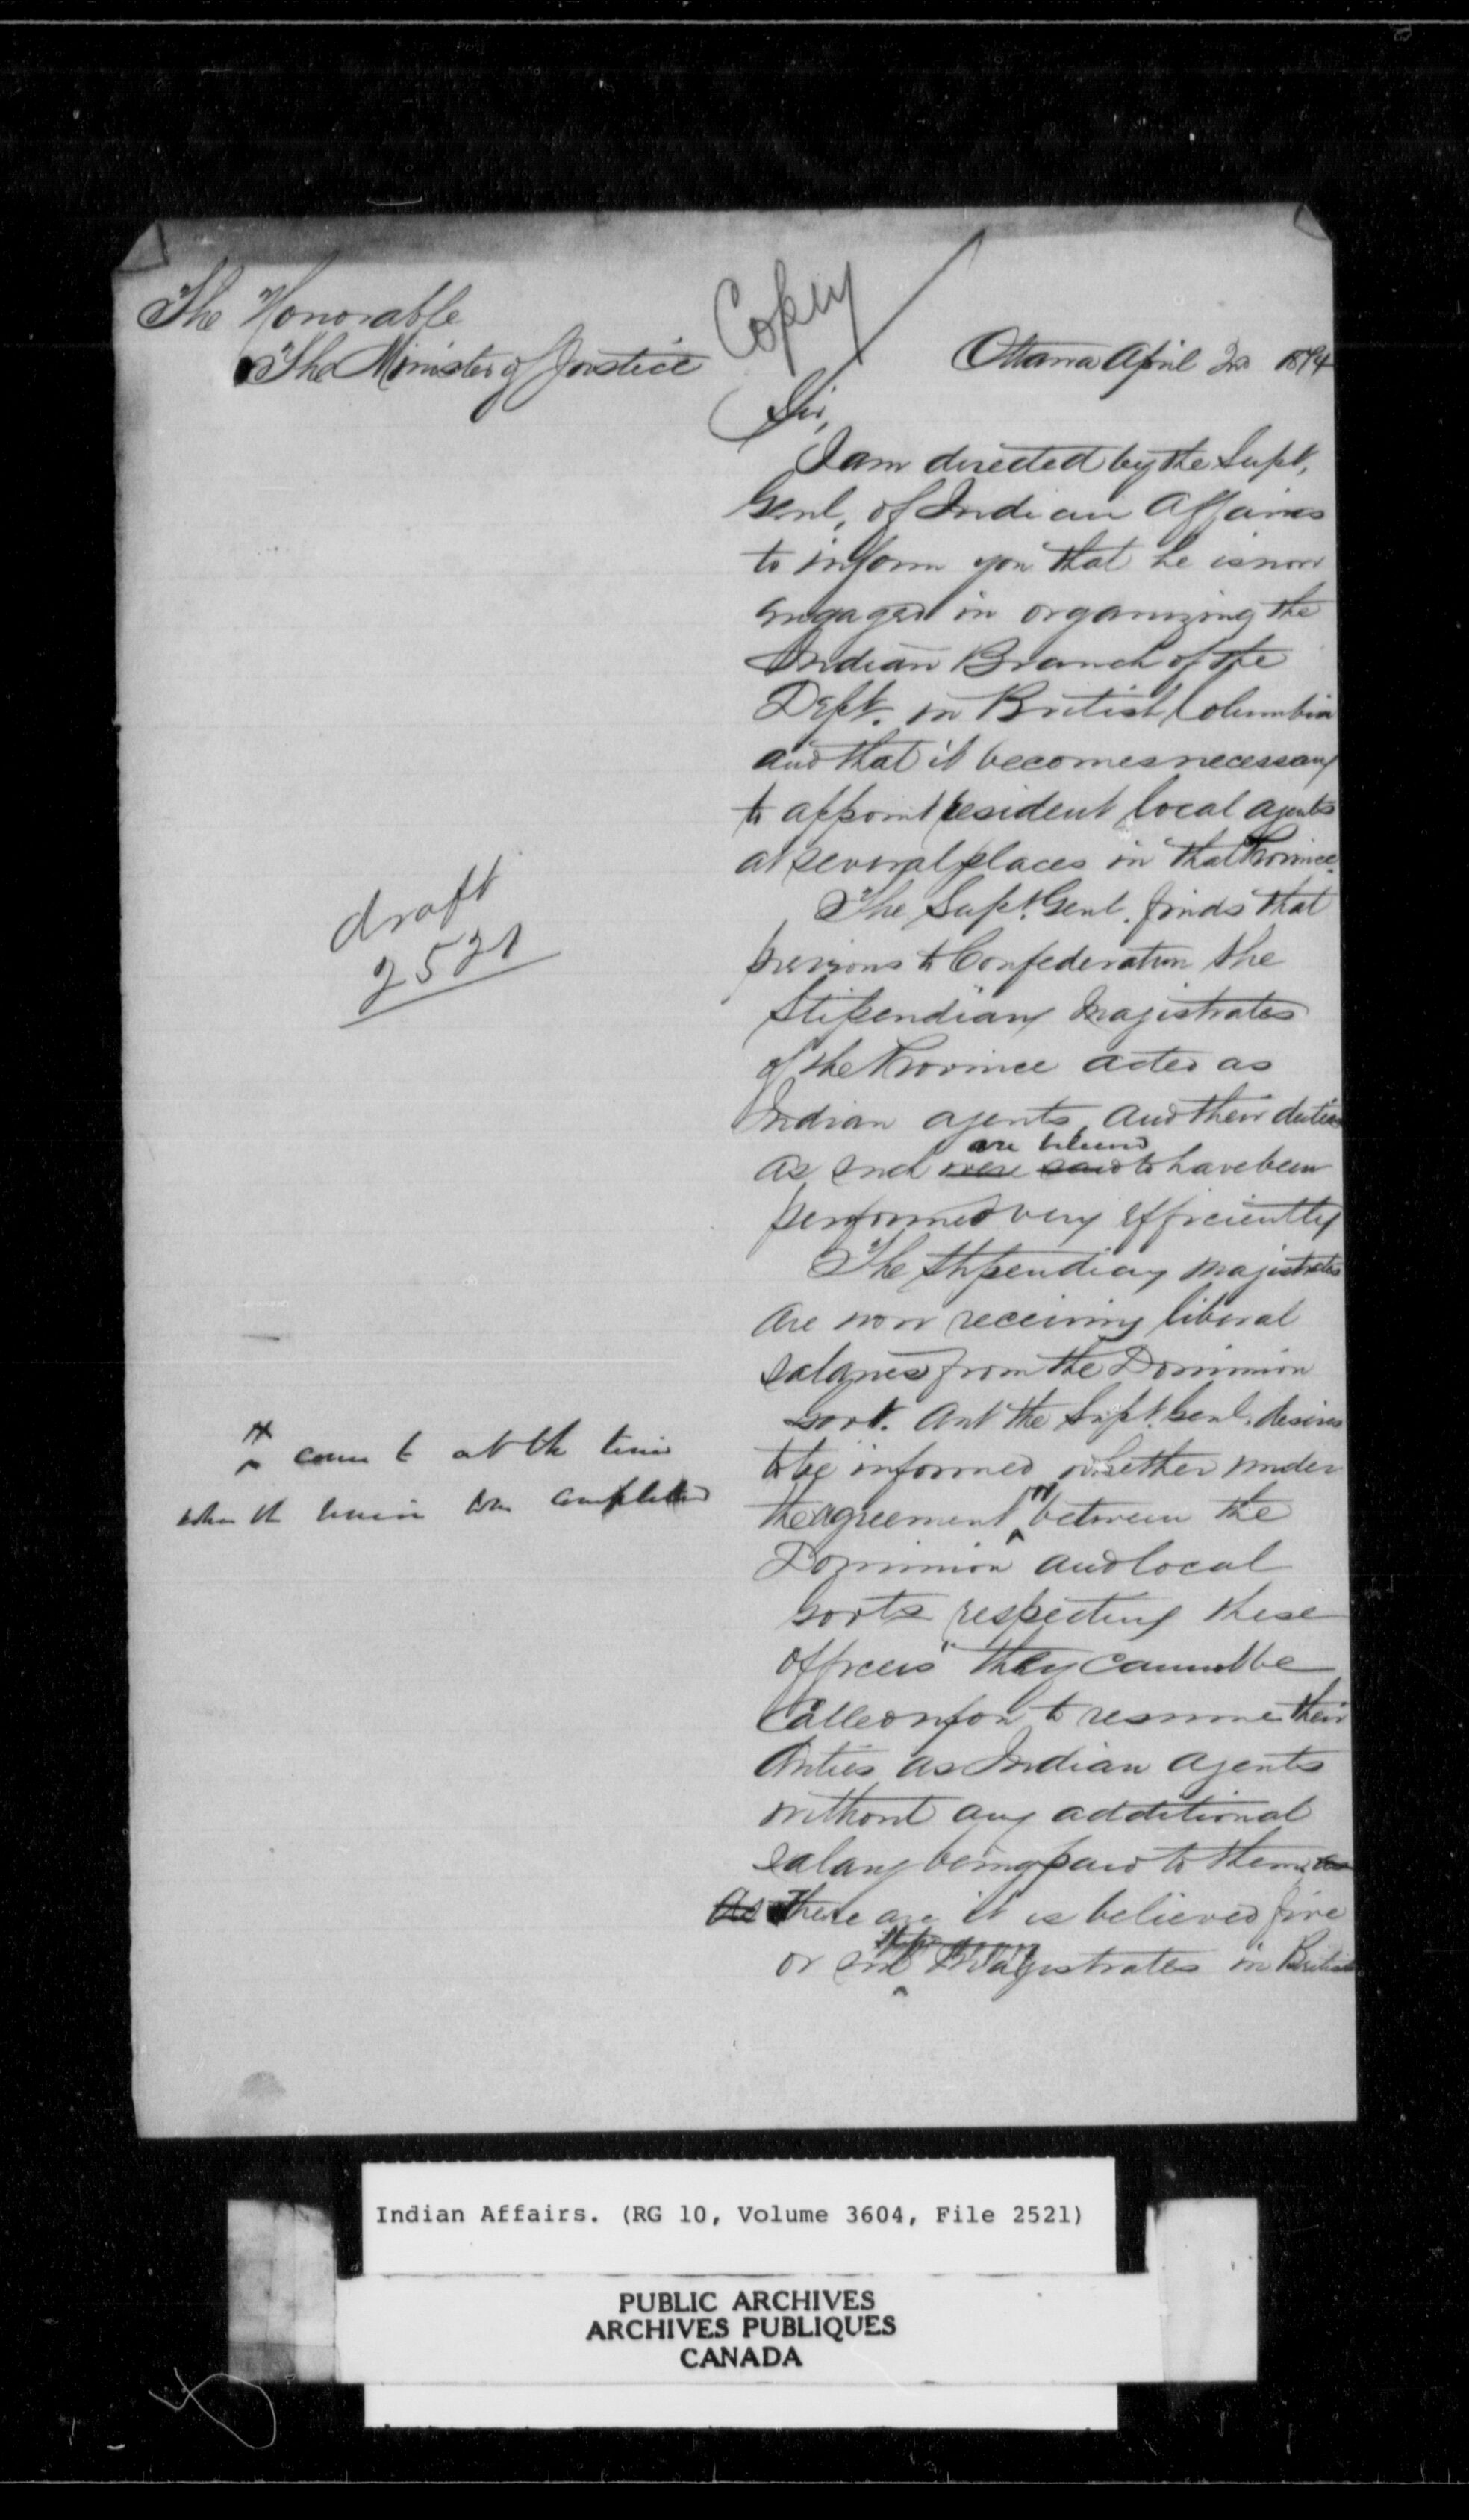 The Honorable
The Minister of Justice
Copy
Ottawa April 2nd 1874
Sir,
I am directed by the Supt,
Genl, of Indian Affairs
to inform you that he is now
engaged in organizing the
Indian Branch of the
Dept. in British Columbia
and that it becomes necessary
to appoint resident local agents
at several places in that Province.
The Supt. Genl. finds that
previous to Confederation the
Stipendiary Magistrates
of the Province acted as
Indian agents, and their duties
are believed
as such were said to have been
performed very efficiently
The Stipendiary Magistrates
are now receiving liberal
salaries from the Dominion
Govt. and the Supt. Genl. desires
to be informed whether under
the agreement between the
Dominion and local
Govts respecting these
officers they cannot be
called upon to resume their
duties as Indian Agents
without any additional
salary being paid to them as
As There are it is believed five
or six Magistrates in British
draft
2521
come to at the time
when the union was completed
Indian Affairs. (RG 10, Volume 3604, File 2521)
PUBLIC ARCHIVES
ARCHIVES PUBLIQUES
CANADA